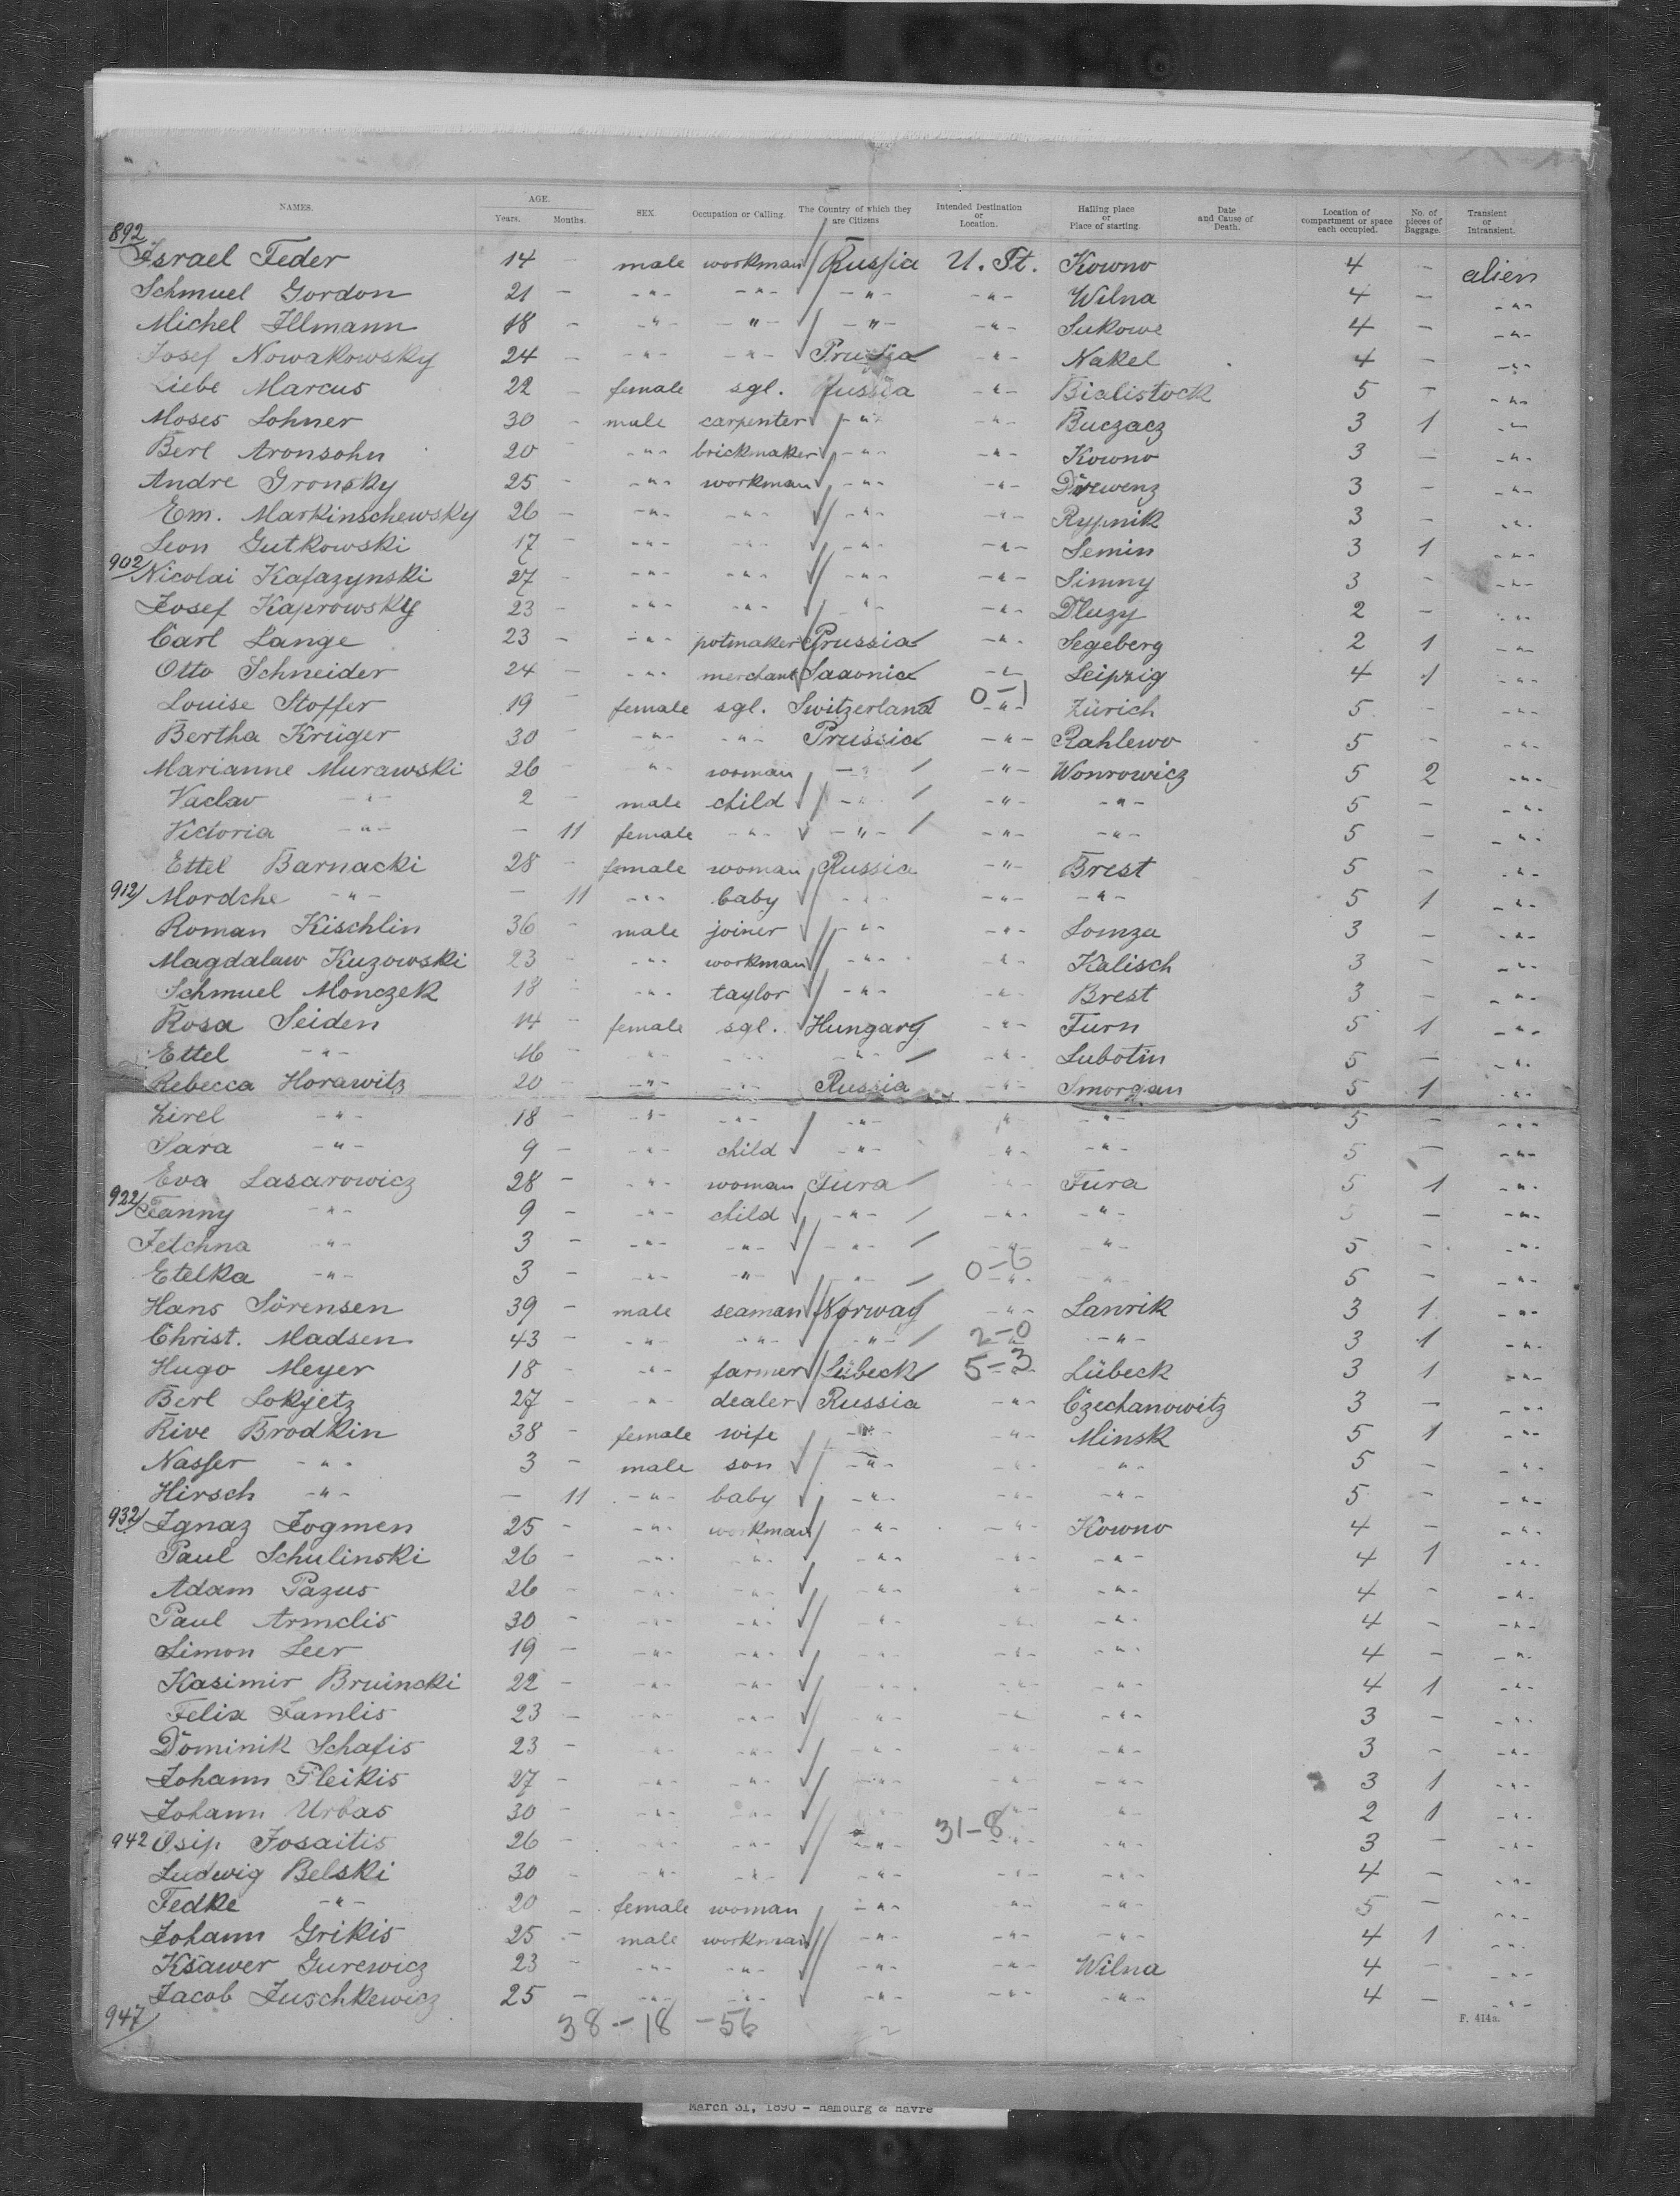 NAMES. AGE. Years. Months. SEX. Occupation or Calling. The Country of which they are Citizens Intended Destination or Location. Hailing place or Place of starting. Date and Cause of Death. Location of compartment or space each occupied. No. of pieces of Baggage. Transient or Intransient.
892
Israel Feder 14 - male workman Russia U. St. Kowno 4 - alien
Schmuel Gordon 21 - -"- -"- -"- -"- Wilna 4 - -"-
Michel Illmann 18 - -"- -"- -"- -"- Sukowe 4 - -"-
Josef Nowakowsky 24 - -"- -"- Prussia -"- Nakel 4 - -"-
Liebe Marcus 22 - female sgl. Russia -"- Bialistock 5 - -"-
Moses Lohner 30 - male carpenter -"- -"- Buczacz 3 1 -"-
Berl Aronsohn 20 - -"- brickmaker -"- -"- Kowno 3 - -"-
Andre Gronsky 25 - -"- workman -"- -"- 3 - -"-
Em. Markinschewsky 26 - -"- -"- -"- -"- Rypnik 3 - -"-
Leon Gutkowski 17 - -"- -"- -"- -"- Semin 3 1 -"-
902 Nicolai Kafazynski 27 - -"- -"- -"- -"- Simny 3 - -"-
Josef Kaprowsky 23 - -"- -"- -"- -"- Dluzy 2 - -"-
Carl Lange 23 - -"- potmaker Prussia -"- Segeberg 2 1 -"-
Otto Schneider 24 - -"- merchant Saxonia -"- Leipzig 4 1 -"-
Louise Stoffer 19 - female sgl. Switzerland 0-1 -"- Zürich 5 - -"-
Bertha Krüger 30 - -"- -"- Prussia -"- Rahlewo 5 - -"-
Marianne Murawski 26 - -"- woman -"- -"- Wonrowicz 5 2 -"-
Vaclav -"- 2 - male child -"- -"- -"- 5 - -"-
Victoria -"- - 11 female -"- -"- -"- -"- 5 - -"-
Ettel Barnacki 28 - female woman Russia -"- Brest 5 - -"-
912 Mordche -"- - 11 -"- baby -"- -"- -"- 5 1 -"-
Roman Kischlin 36 - male joiner -"- -"- Lomza 3 - -"-
Magdalaw Kuzowski 23 - -"- workman -"- -"- Kalisch 3 - -"-
Schmuel Monczek 18 - -"- taylor -"- -"- Brest 3 - -"-
Rosa Seiden 14 - female sgl. Hungary -"- Turn 5 1 -"-
Ettel -"- 16 - -"- -"- -"- -"- Lubotin 5 - -"-
Rebecca Horawitz 20 - -"- -"- Russia -"- Smorgan 5 1 -"-
Zirel -"- 18 - -"- -"- -"- -"- -"- 5 - -"-
Sara -"- 9 - -"- child -"- -"- -"- 5 - -"-
Eva Lasarowicz 28 - -"- woman Tura -"- Tura 5 1 -"-
922 Fanny -"- 9 - -"- child -"- -"- -"- 5 - -"-
Fetchna -"- 3 - -"- -"- -"- -"- -"- 5 - -"-
Etelka -"- 3 - -"- -"- -"- 0-6 -"- -"- 5 - -"-
Hans Sörensen 39 - male seaman Norway -"- Lanrik 3 1 -"-
Christ. Madsen 43 - -"- -"- -"- 2-0 -"- -"- 3 1 -"-
Hugo Meyer 18 - -"- farmer Lübeck 5-3 Lübeck 3 1 -"-
Berl Lokjetz 27 - -"- dealer Russia -"- Czechanowitz 3 - -"-
Rive Brodkin 38 - female wife -"- -"- Minsk 5 1 -"-
Nasser -"- 3 - male son -"- -"- -"- 5 - -"-
Hirsch -"- - 11 -"- baby -"- -"- -"- 5 - -"-
932 Ignaz Jogmen 25 - -"- workman -"- -"- Kowno 4 - -"-
Paul Schulinski 26 - -"- -"- -"- -"- -"- 4 1 -"-
Adam Pazus 26 - -"- -"- -"- -"- -"- 4 - -"-
Paul Armelis 30 - -"- -"- -"- -"- -"- 4 - -"-
Simon Leer 19 - -"- -"- -"- -"- -"- 4 - -"-
Kasimir Bruincki 22 - -"- -"- -"- -"- -"- 4 1 -"-
Felix Jamlis 23 - -"- -"- -"- -"- -"- 3 - -"-
Dominik Schafis 23 - -"- -"- -"- -"- -"- 3 - -"-
Johann Pleikis 27 - -"- -"- -"- -"- -"- 3 1 -"-
Johann Urbas 30 - -"- -"- -"- -"- -"- 2 1 -"-
942 Osip Josaitis 26 - -"- -"- -"- 31-8 -"- -"- 3 - -"-
Ludwig Belski 30 - -"- -"- -"- -"- -"- 4 - -"-
Fedke -"- 20 - female woman -"- -"- -"- 5 - -"-
Johann Grikis 25 - male workman -"- -"- -"- 4 1 -"-
Ksawer Gurewicz 23 - -"- -"- -"- -"- Wilna 4 - -"-
Jacob Juschkewicz 25 - -"- -"- -"- -"- -"- 4 - -"-
947 38-18-56
F. 414a.
March 31, 1890 - Hamburg & Havre